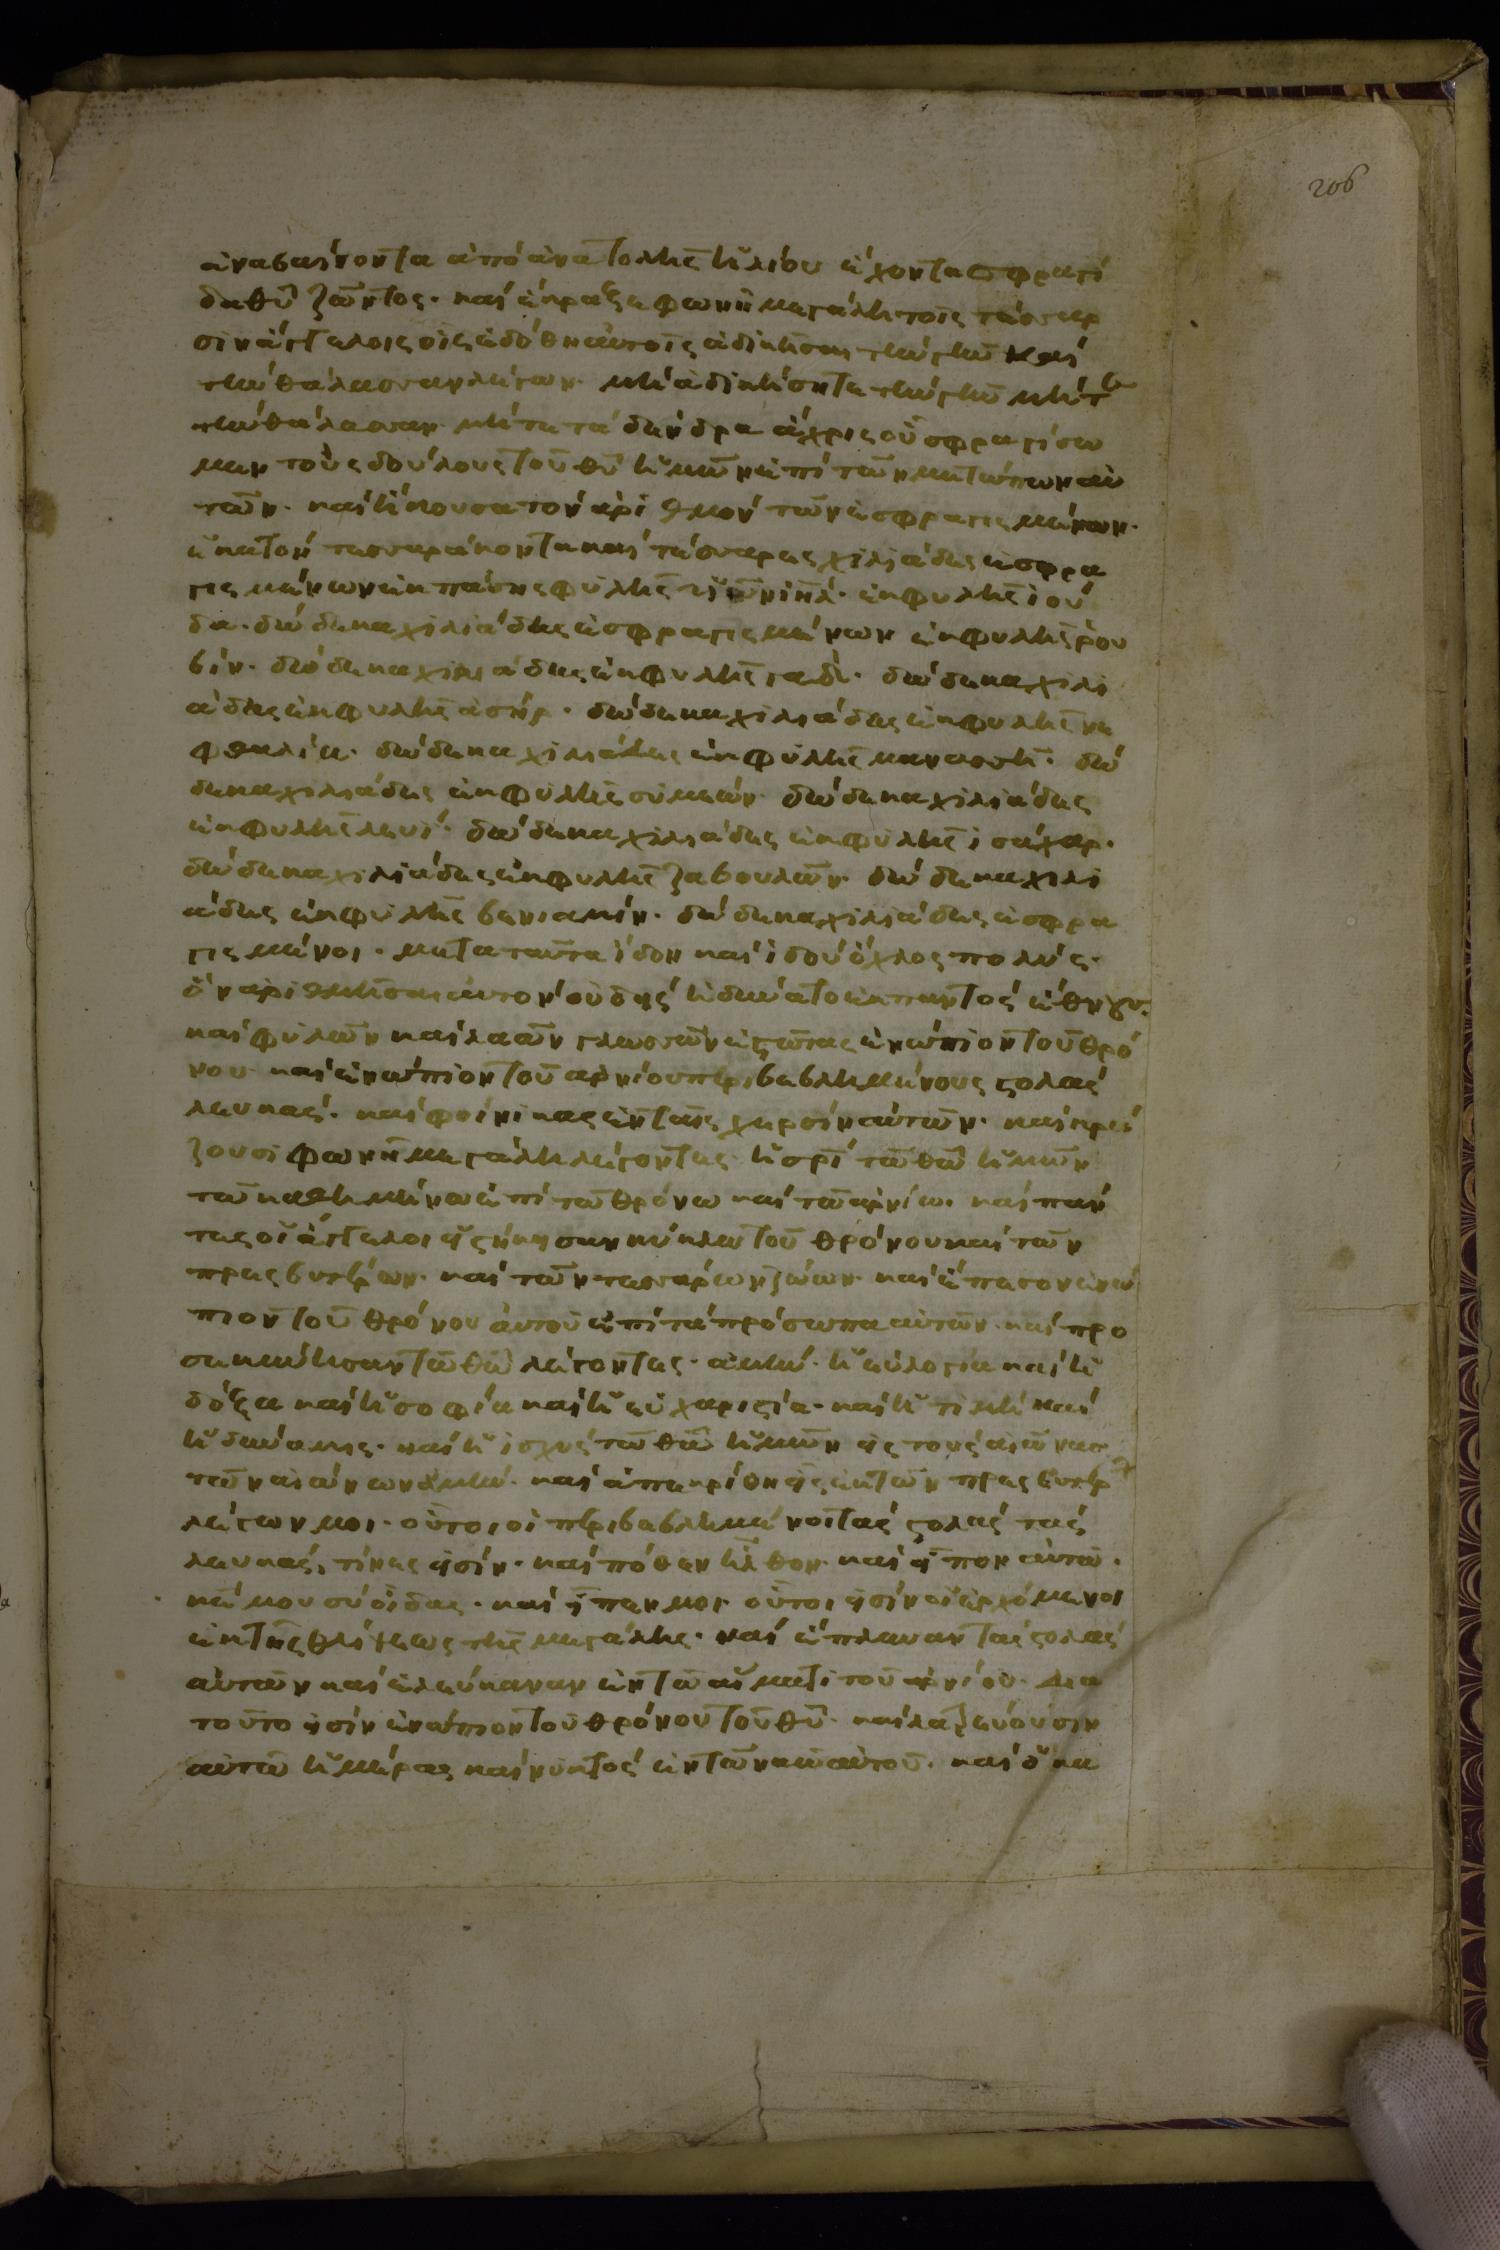 206
ἀναβαίνοντα ἀπὸ ἀνατολῆς ἡλίου ἔχοντα σφραγί
δα θῦ ζῶντος· καὶ ἔκραξε φωνῆ μεγάλη τοῖς τέσσαρ
σιν ἀγγέλοις οἷς ἐδόθη αὐτοῖς ἀδικῆσαι τὴν γῆν καὶ
τὴν θάλασσαν λέγων· μὴ ἀδικήσητε τὴν γῆν μήτε
τὴν θάλασσαν μήτε τὰ δένδρα ἄχρις οὗ σφραγίσω
μεν τοὺς δούλους τοῦ θῦ ἡμῶν ἐπὶ τῶν μετώπων αὐ
τῶν· καὶ ἤκουσα τὸν ἀριθμὸν τῶν ἐσφραγισμένων·
ἑκατὸν τεσσαράκοντα καὶ τέσσαρες χιλιάδες ἐσφρα
γισμένων ἐκ πάσης φυλῆς υἱῶν ιηλ· ἐκ φυλῆς ἰού
δα· δώδεκα χιλιάδες ἐσφραγισμένων ἐκ φυλῆς ῥου
βίν· δώδεκα χιλιάδες ἐκ φυλῆς γαδ· δώδεκα χιλι
άδες ἐκ φυλῆς ἀσήρ· δώδεκα χιλιάδες ἐκ φυλῆς νε
φθαλία· δώδεκα χιλιάδες ἐκ φυλῆς μανασσῆ· δώ
δεκα χιλιάδες ἐκ φυλῆς συμεών· δώδεκα χιλιάδες
ἐκ φυλῆς λευί· δώδεκα χιλιάδες ἐκ φυλῆς ἰσάχαρ·
δώδεκα χιλιάδες ἐκ φυλῆς ζαβουλῶν· δώδεκα χιλι
άδες ἐκ φυλῆς βενιαμίν· δώδεκα χιλιάδες ἐσφρα
γισμένοι· μετὰ ταῦτα ἴδον καὶ ἰδοὺ ὄχλος πολύς·
ὃν ἀριθμῆσαι αὐτὸν οὐδεὶς ἠδύνατο ἐκ παντὸς ἔθνους
καὶ φυλῶν καὶ λαῶν γλωσσῶν ἑστῶτας ἐνώπιον τοῦ θρό
νου· καὶ ἐνώπιον τοῦ ἀρνίου περιβεβλημένους στολὰς
λευκάς· καὶ φοίνικας ἐν ταῖς χερσὶν αὐτῶν· καὶ κρά
ζουσι φωνῆ μεγάλη λέγοντες· ἡ σρι τῶ θῶ ἡμῶν
τῶ καθημένω ἐπὶ τῶ θρόνω καὶ τῶ ἀρνίω· καὶ πάν
τες οἱ ἄγγελοι εἱστήκησαν κύκλω τοῦ θρόνου καὶ τῶν
πρεσβυτέρων· καὶ τῶν τεσσάρων ζώων· καὶ ἔπεσον ἐνώ
πιον τοῦ θρόνου αὐτοῦ ἐπὶ τὰ πρόσωπα αὐτῶν· καὶ προ
σεκύνησαν τῶ θῶ λέγοντες· ἀμήν· ἡ εὐλογία καὶ ἡ
δόξα καὶ ἡ σοφία καὶ ἡ εὐχαριστία· καὶ ἡ τιμὴ καὶ
ἡ δύναμις· καὶ ἡ ἰσχὺς τῶ θῶ ἡμῶν εἰς τοὺς αἰῶνας
τῶν αἰώνων ἀμήν· καὶ ἀπεκρίθη εἷς ἐκ τῶν πρεσβυτέρ
λέγων μοι· οὗτοι οἱ περιβεβλημένοι τὰς στολὰς τὰς
λευκάς, τίνες εἰσίν· καὶ πόθεν ἦλθον· καὶ εἶπον αὐτῶ·
κέ μου σὺ οἶδας· καὶ εἶπέν μοι· οὗτοι εἰσὶν οἱ ἐρχόμενοι
ἐκ τῆς θλίψεως τῆς μεγάλης· καὶ ἔπλυναν τὰς στολὰς
αὐτῶν καὶ ἐλεύκαναν ἐν τῶ αἵματι τοῦ ἀρνίου· δια
τοῦτο εἰσὶν ἐνώπιον τοῦ θρόνου τοῦ θῦ· καὶ λατρεύουσιν
αὐτῶ ἡμέρας καὶ νυκτὸς ἐν τῶ ναῶ αὐτοῦ· καὶ ὁ κα